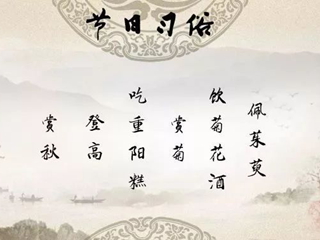 节日习俗
佩茱萸
饮菊花酒
赏菊
吃重阳糕
登高
赏秋